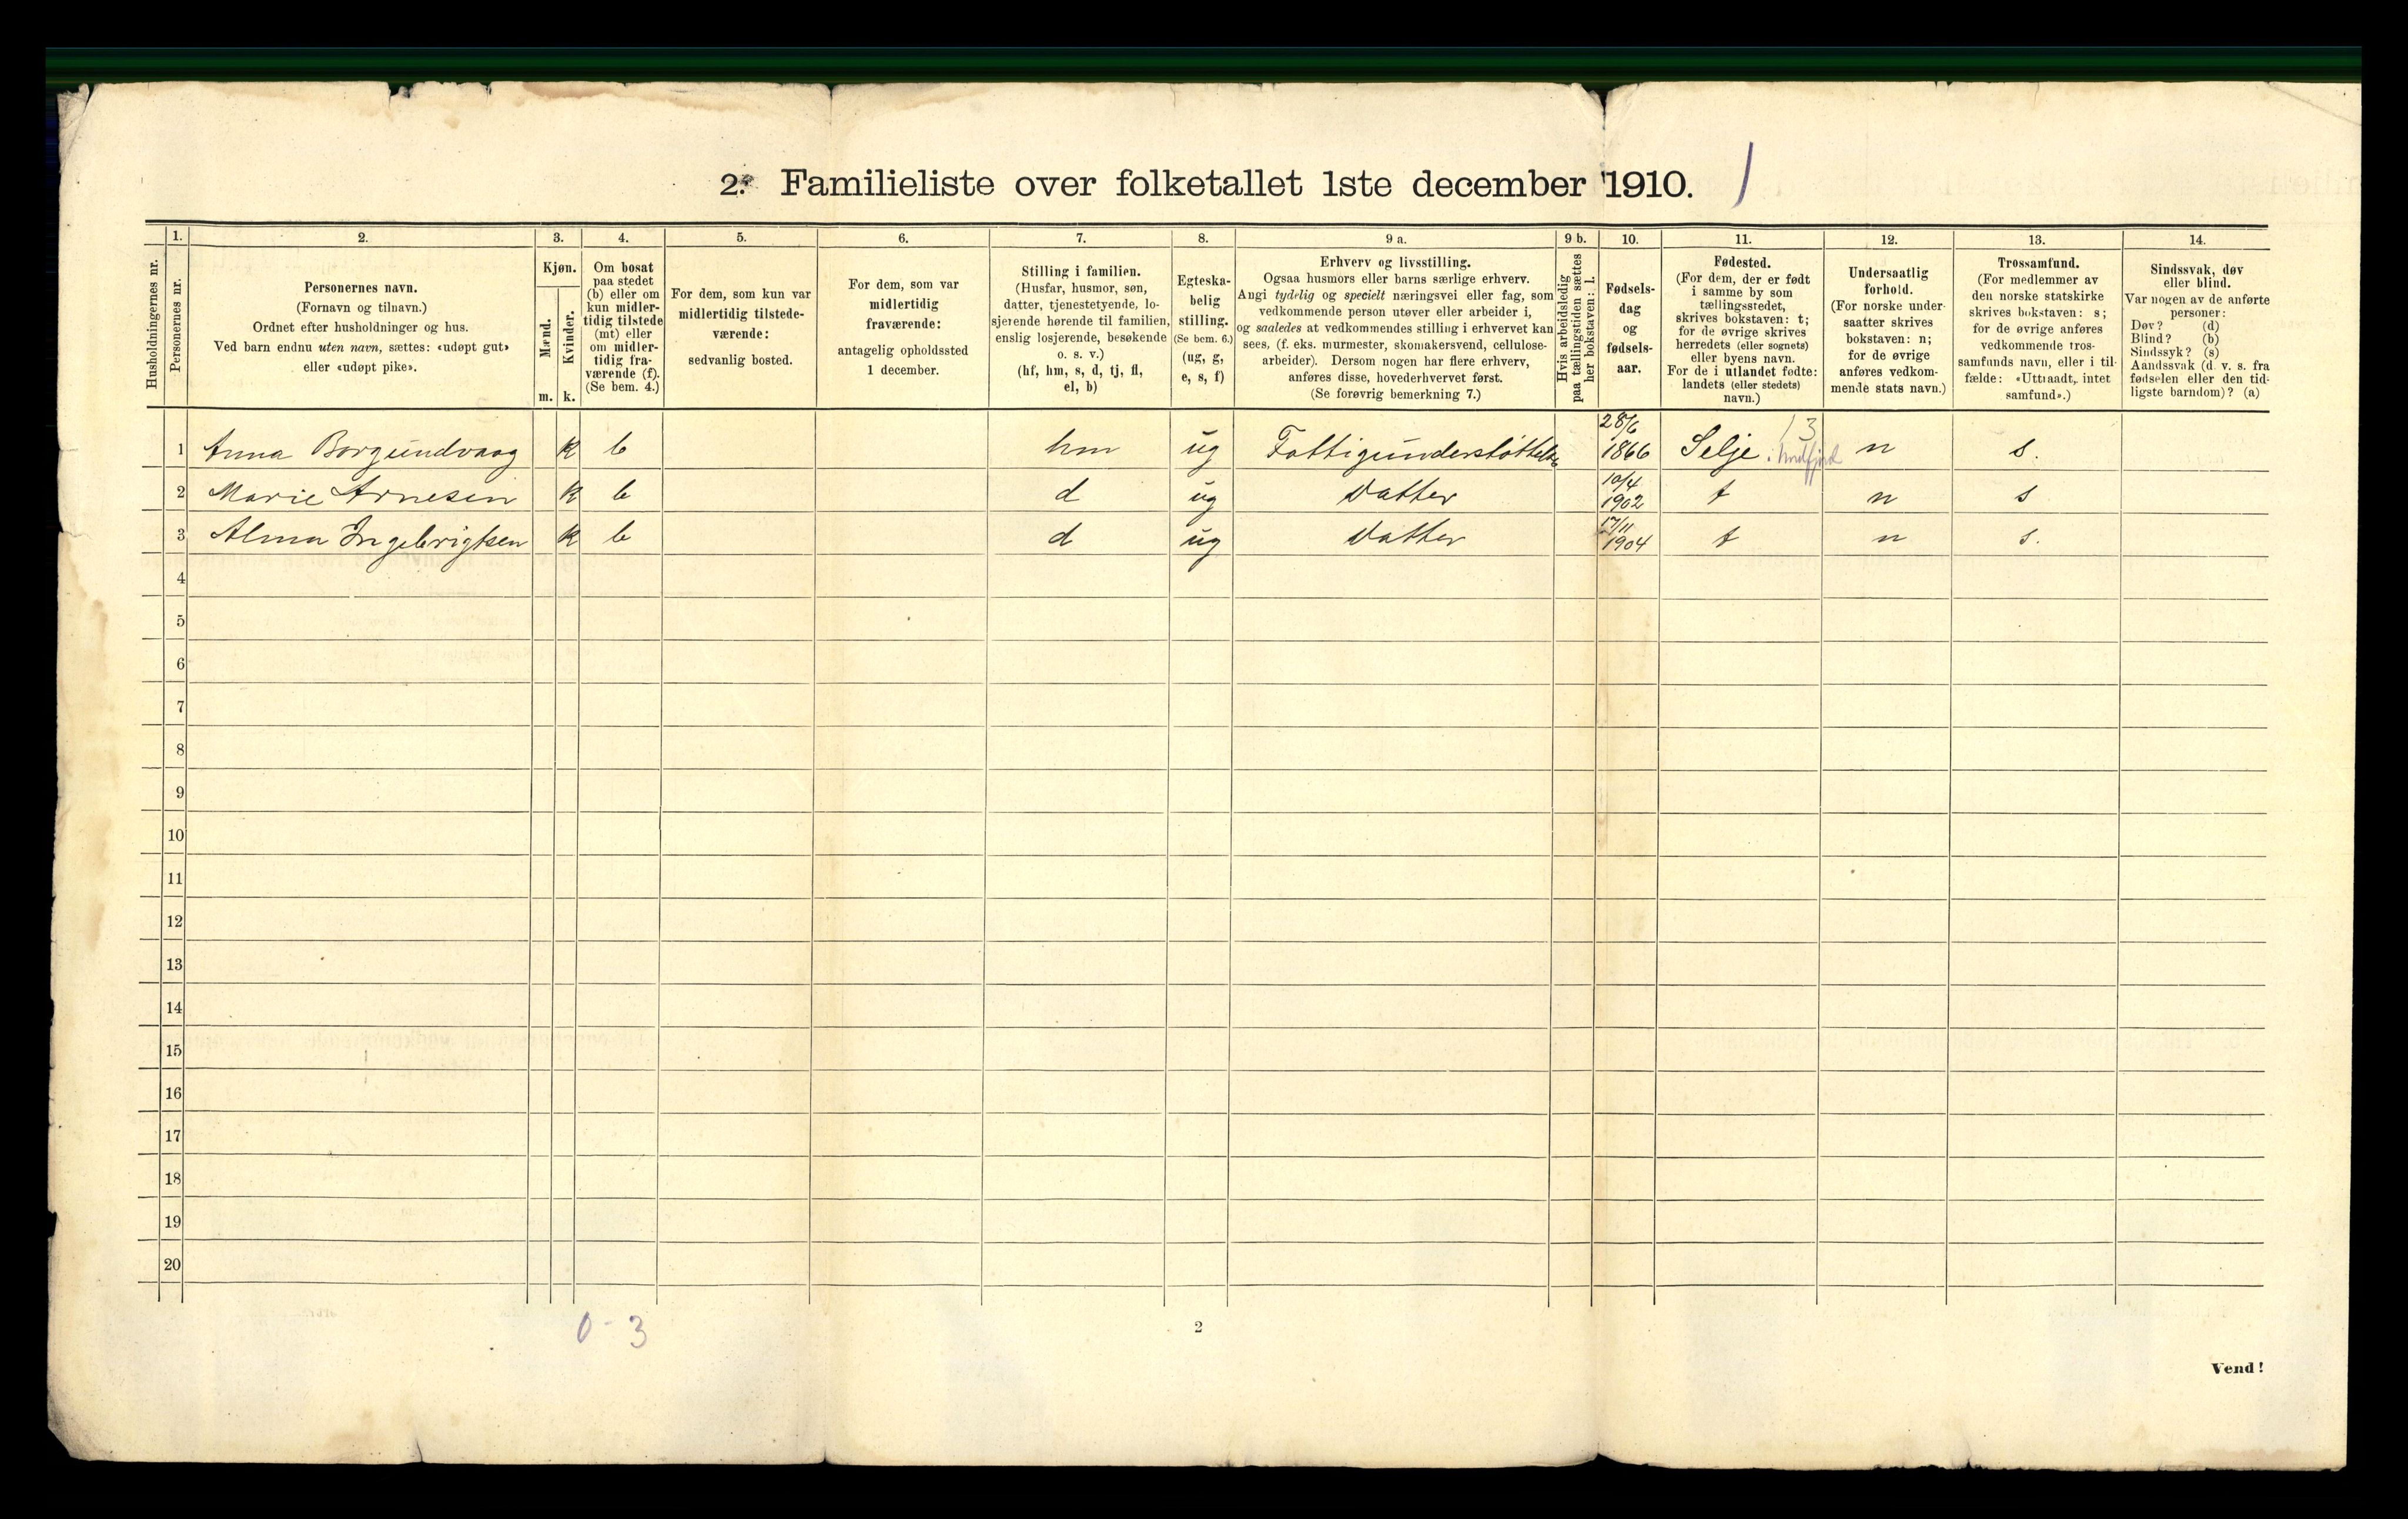 2. Familieliste over folketallet 1ste december 1910.
1. 2. 3. 4. 5. 6. 7. 8. 9 a. 9 b. 10. 11. 12. 13. 14.
Husholdningernes nr.
Personernes nr.
Personernes navn.
(Fornavn og tilnavn.)
Ordnet efter husholdninger og hus.
Ved barn endnu uten navn, sættes: «udøpt gut»
eller «udøpt pike».
Kjøn.
Mænd.
Kvinder.
m. k.
Om bosat
paa stedet
(b) eller om
kun midler-
tidig tilstede
(mt) eller
om midler-
tidig fra-
værende (f).
(Se bem. 4.)
For dem, som kun var
midlertidig tilstede-
værende:
sedvanlig bosted.
For dem, som var
midlertidig
fraværende:
antagelig opholdssted
1 december.
Stilling i familien.
(Husfar, husmor, søn,
datter, tjenestetyende, lo-
sjerende hørende til familien,
enslig losjerende, besøkende
o. s. v.)
(hf, hm, s, d, tj, fl,
el, b)
Egteska-
belig
stilling.
(Se bem. 6.)
(ug, g,
e, s, f)
Erhverv og livsstilling.
Ogsaa husmors eller barns særlige erhverv.
Angi tydelig og specielt næringsvei eller fag, som
vedkommende person utøver eller arbeider i,
og saaledes at vedkommendes stilling i erhvervet kan
sees, (f. eks. murmester, skomakersvend, cellulose-
arbeider). Dersom nogen har flere erhverv,
anføres disse, hovederhvervet først.
(Se forøvrig bemerkning 7.)
Hvis arbeidsledig
paa tællingstiden sættes
her bokstaven: l.
Fødsels-
dag
og
fødsels-
aar.
Fødested.
(For dem, der er født
i samme by som
tællingsstedet,
skrives bokstaven: t;
for de øvrige skrives
herredets (eller sognets)
eller byens navn.
For de i utlandet fødte:
landets (eller stedets)
navn.)
Undersaatlig
forhold.
(For norske under-
saatter skrives
bokstaven: n;
for de øvrige
anføres vedkom-
mende stats navn.)
Trossamfund.
(For medlemmer av
den norske statskirke
skrives bokstaven: s;
for de øvrige anføres
vedkommende tros-
samfunds navn, eller i til-
fælde: «Uttraadt, intet
samfund».)
Sindssvak, døv
eller blind.
Var nogen av de anførte
personer:
Døv? (d)
Blind? (b)
Sindssyk? (s)
Aandssvak (d. v. s. fra
fødselen eller den tid-
ligste barndom)? (a)
1 Anna Borgundvaag k b hm ug Fattigunderstøttelse 28/6 1866 Selje i Nordfjord 13 n s.
2 Marie Arnesen k b d ug datter 10/4 1902 t n s
3 Alma Ingebrigtsen k b d ug datter 17/11 1904 t n s.
4
5
6
7
8
9
10
11
12
13
14
15
16
17
18
19
20
0 - 3
2
Vend!